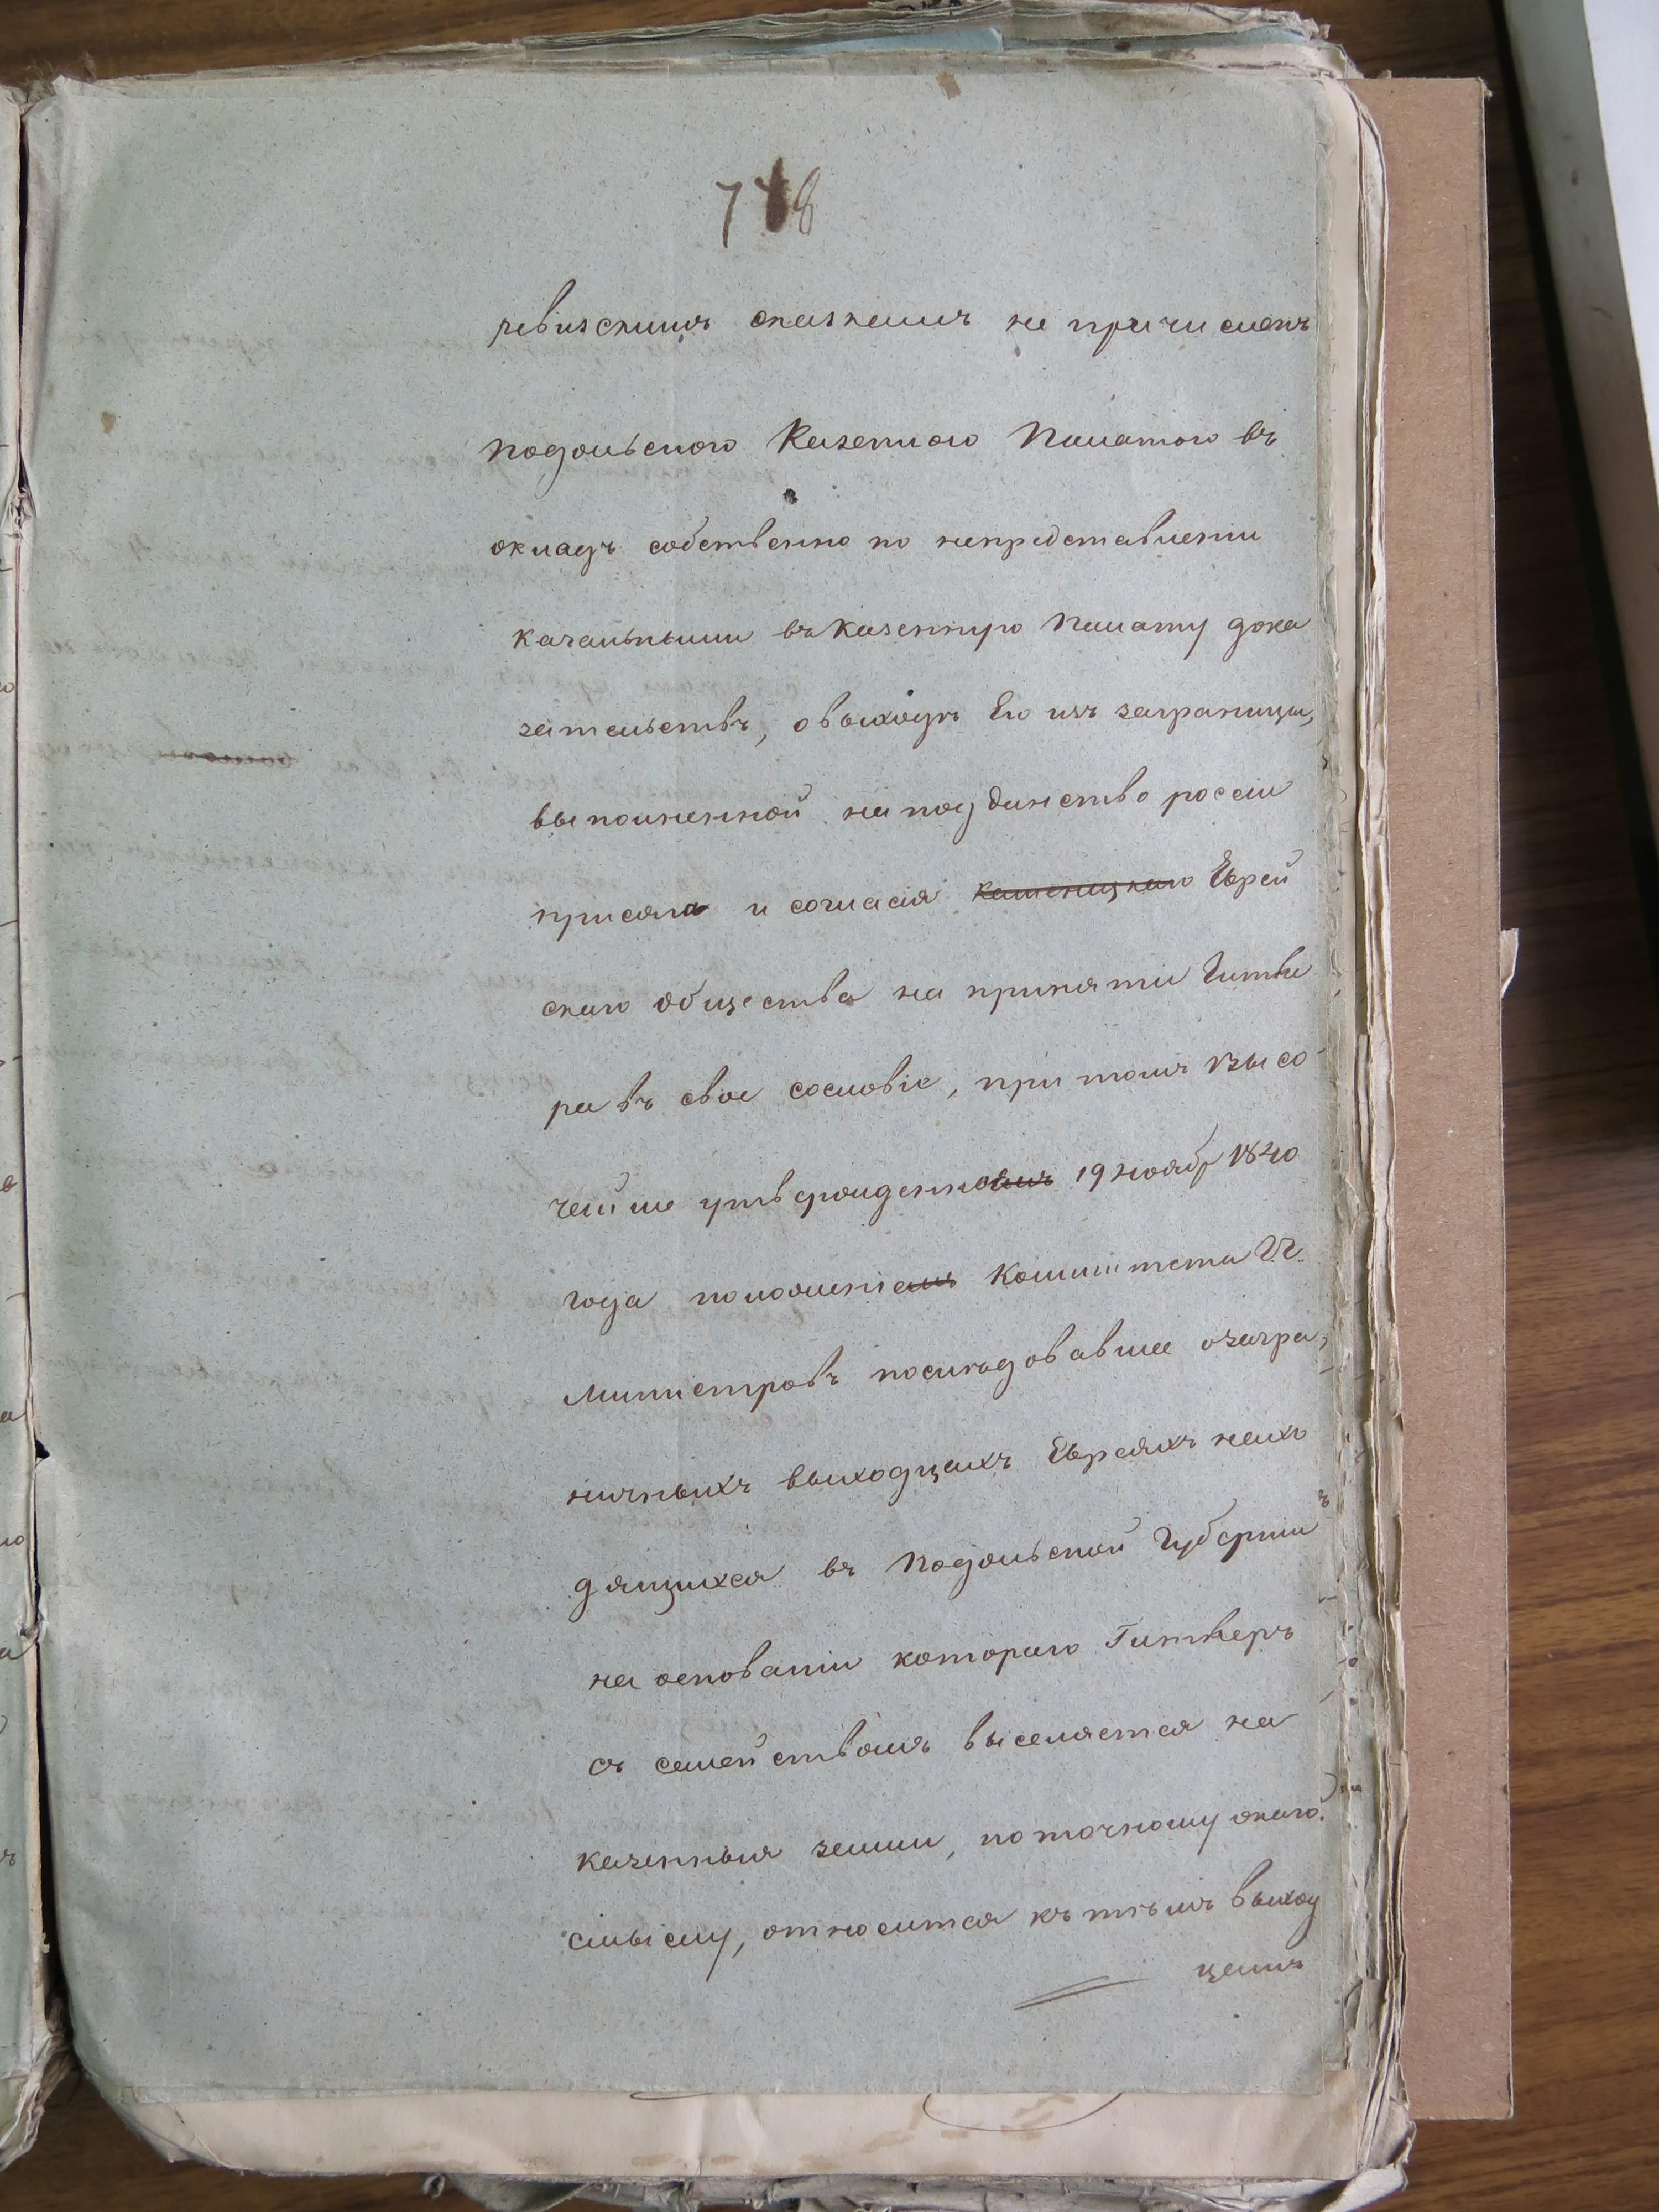 778
ревизскимъ сказкамъ не причисленъ
Подольскою Казенною Палатою въ
окладъ собственно по непредставлении
качальными въ Казенную Палату дока
зательствъ, о выходѣ Его изъ заграницы,
выполненной на подданство россіи
присяги и согласія Каменецкаго Еврей
скаго общества на принятіи Гитве
ра въ свое сословіе, при томъ Высо-
чейше утвержденномъ 19 ноябр 1840
года положеніемъ Комитета Гг.
Министровъ последовавшее о загра,
ничныхъ выходцахъ Евреяхъ нахо
дящихся въ Подольской Губерніи
на основаніи котораго Гитверъ
съ семействомъ выселяется на
казенныя земли, по точному онаго
смыслу, относится къ тѣмъ выход
цамъ